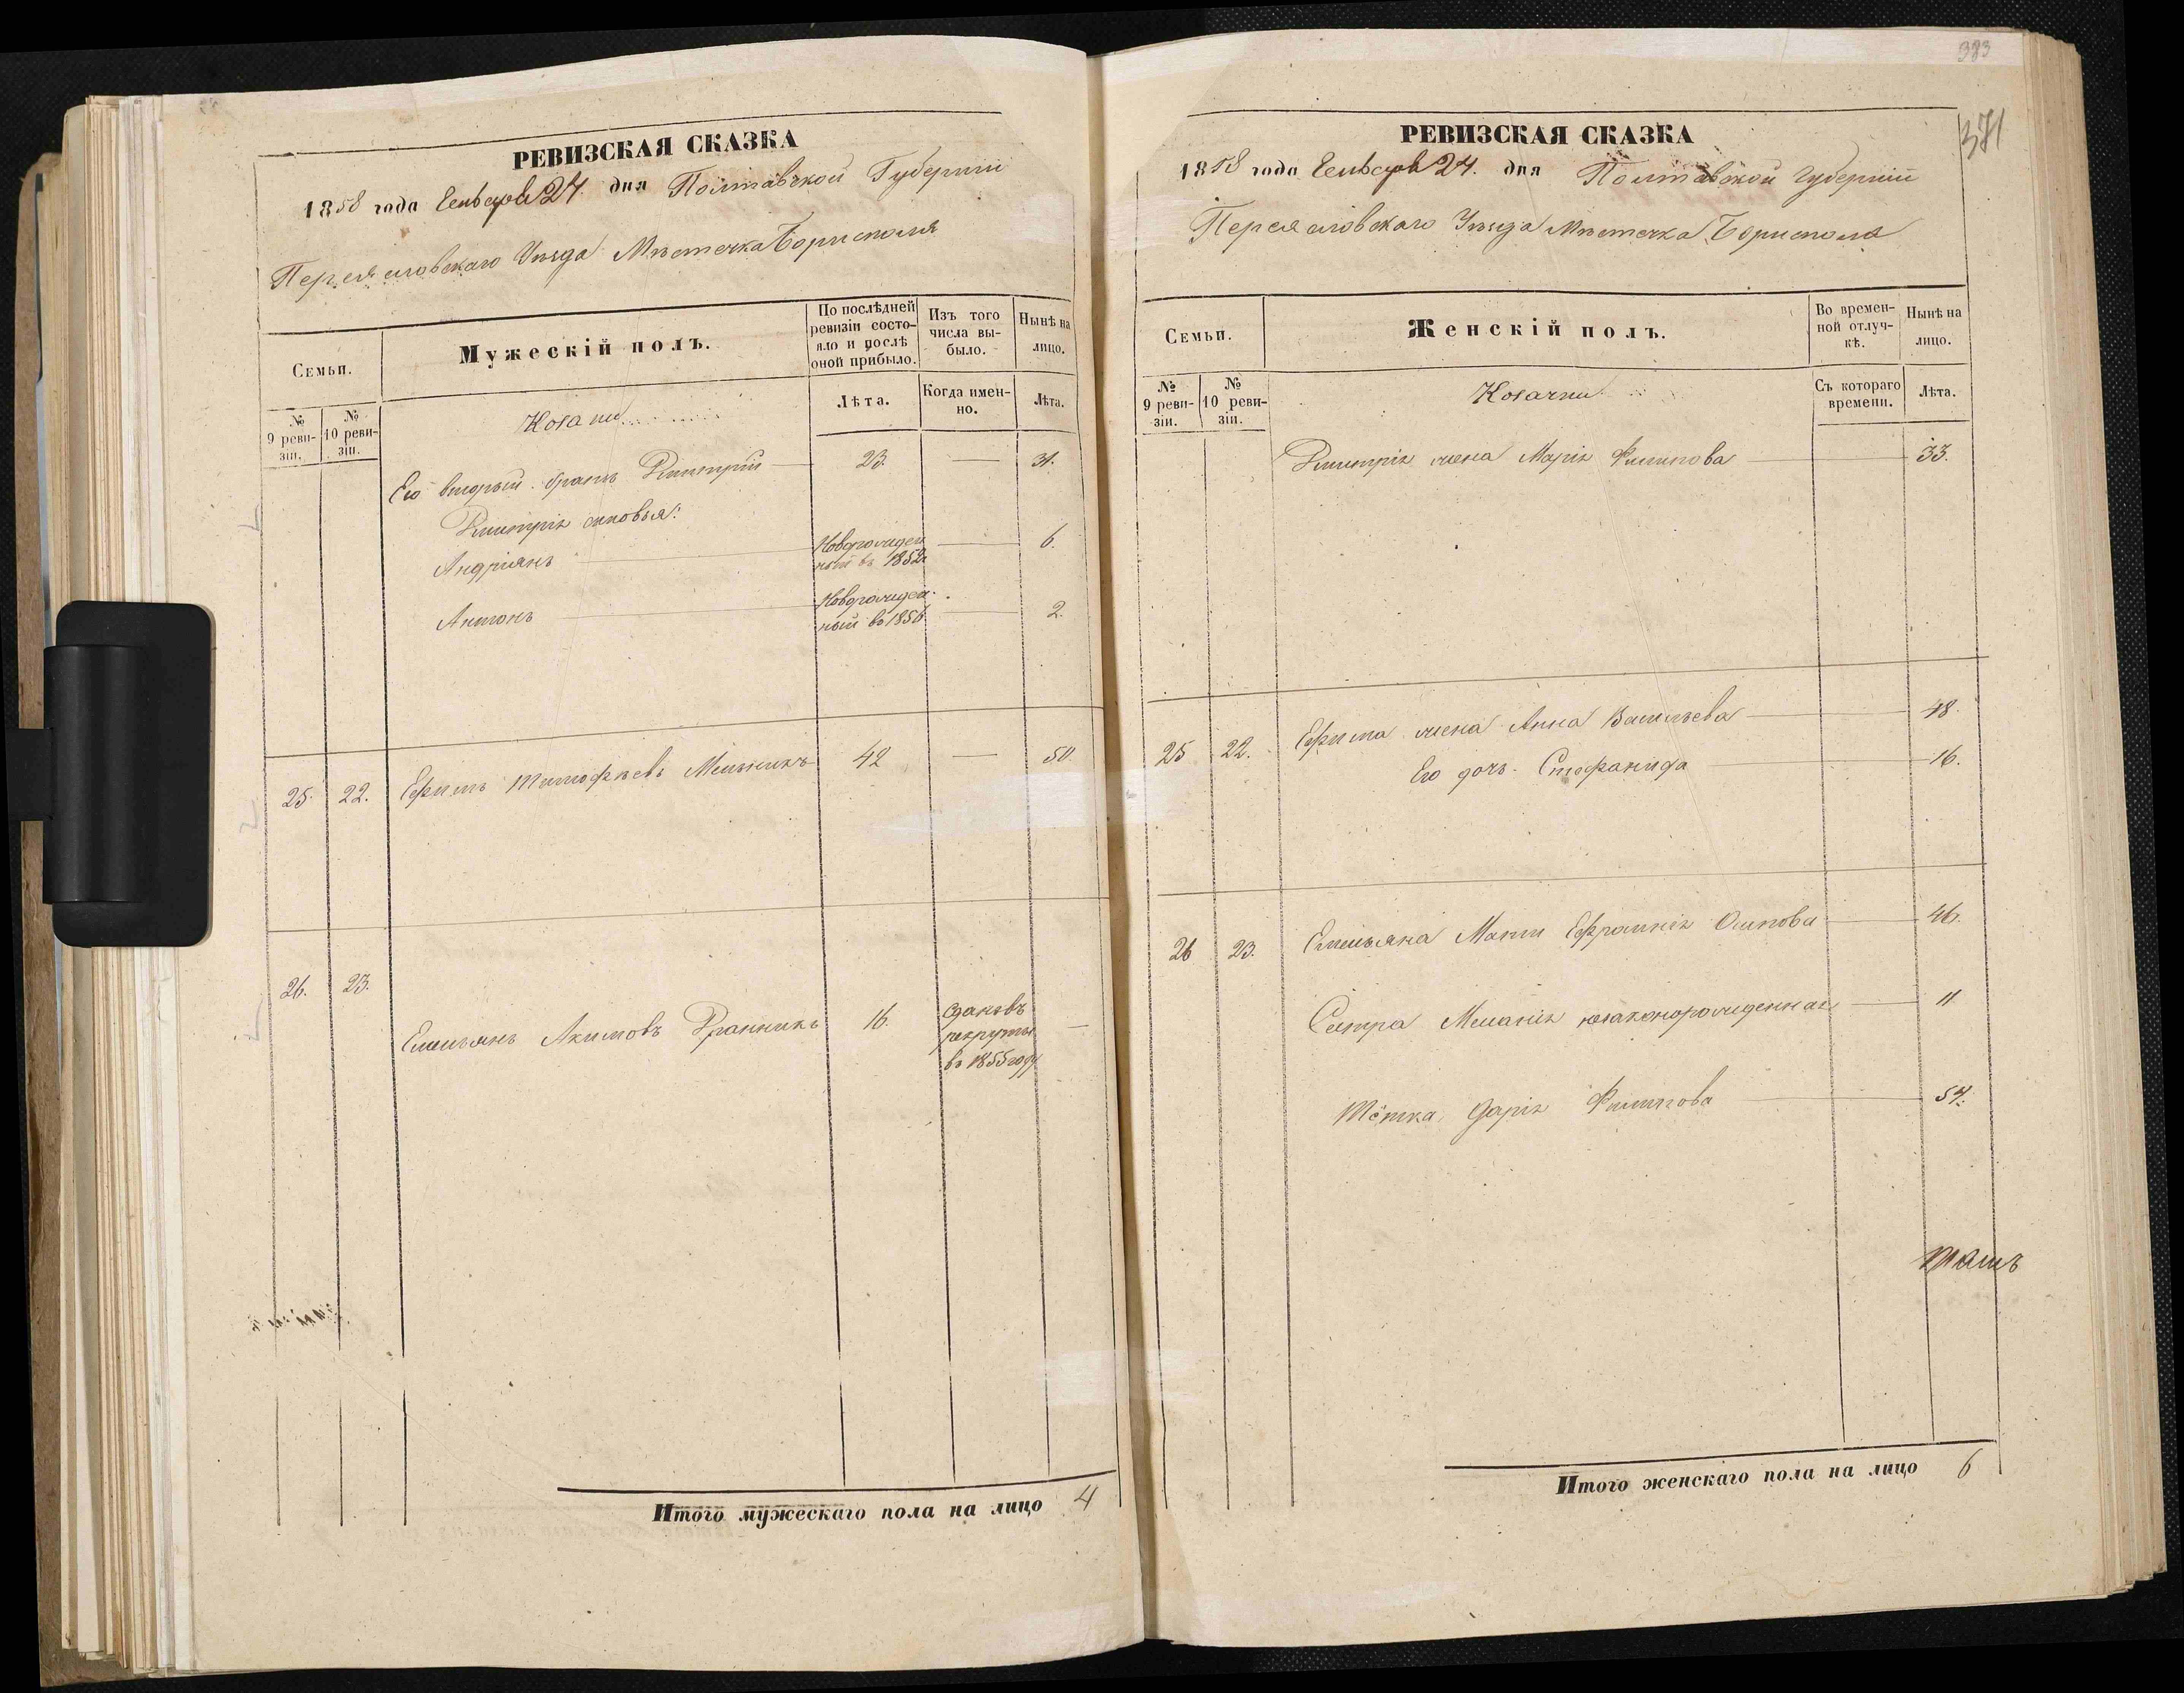 РЕВИЗСКАЯ СКАЗКА
1858 года Генваря 24. дня Полтавской Губернии
Переяславскаго Уѣзда Мѣстечка Борисполя
Семьи.
Мужескій полъ.
По послѣдней ревизіи состояло и послѣ оной прибыло.
Изъ того числа выбыло.
Нынѣ на лицо.
№ 9 ревизіи.
№ 10 ревизіи.
Козаки
Лѣта.
Когда именно.
Лѣта.
Его вторый братъ Дмитрій 23. — 31.
Дмитрія сыновья:
Андріянъ Новорожденный въ 1852 — 6.
Антонъ Новорожденный въ 1856 — 2.
25. 22. Ефимъ Тимофѣевъ Мельникъ 42 — 50
26. 23.
Емельянъ Акимовъ 16. Сданъ въ рекруты въ 1855 году —
Итого мужескаго пола на лицо 4
383
371
РЕВИЗСКАЯ СКАЗКА
1858 года Генваря 24. дня Полтавской Губерніи
Переяславскаго Уѣзда Мѣстечка Борисполя
Семьи.
Женскій полъ.
Во временной отлучкѣ.
Нынѣ на лицо.
№ 9 ревизіи.
№ 10 ревизіи.
Козачки
Съ котораго времени.
Лѣта.
Дмитрія жена Марія Филипова 33.
25 22. Ефима жена Анна Васильева 48.
Его дочь Стефанида 16.
26 23. Емельяна Мати Ефросинія Осипова 46.
Сестра Меланія незаконорожденная 11
Тётка Дарія Филипова 54.
Итого женскаго пола на лицо 6